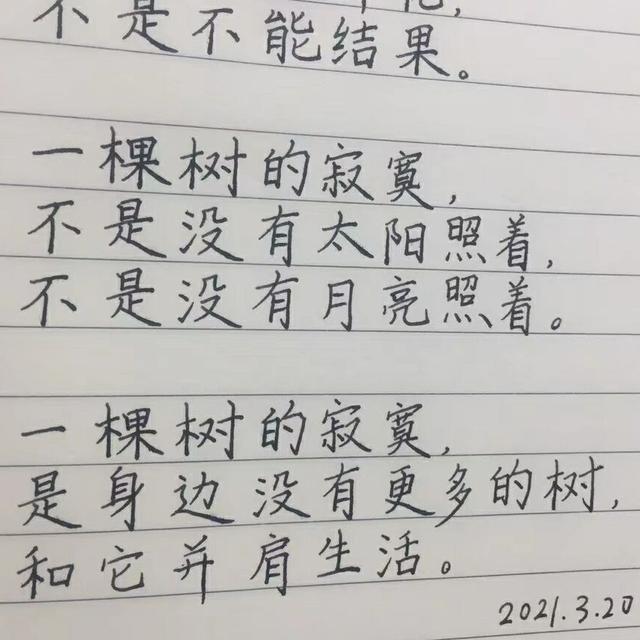 不是不能结果。
一棵树的寂寞,
不是没有太阳照着,
不是没有月亮照着。
一棵树的寂寞,
是身边没有更多的树,
和它并肩生活。
2021.3.20